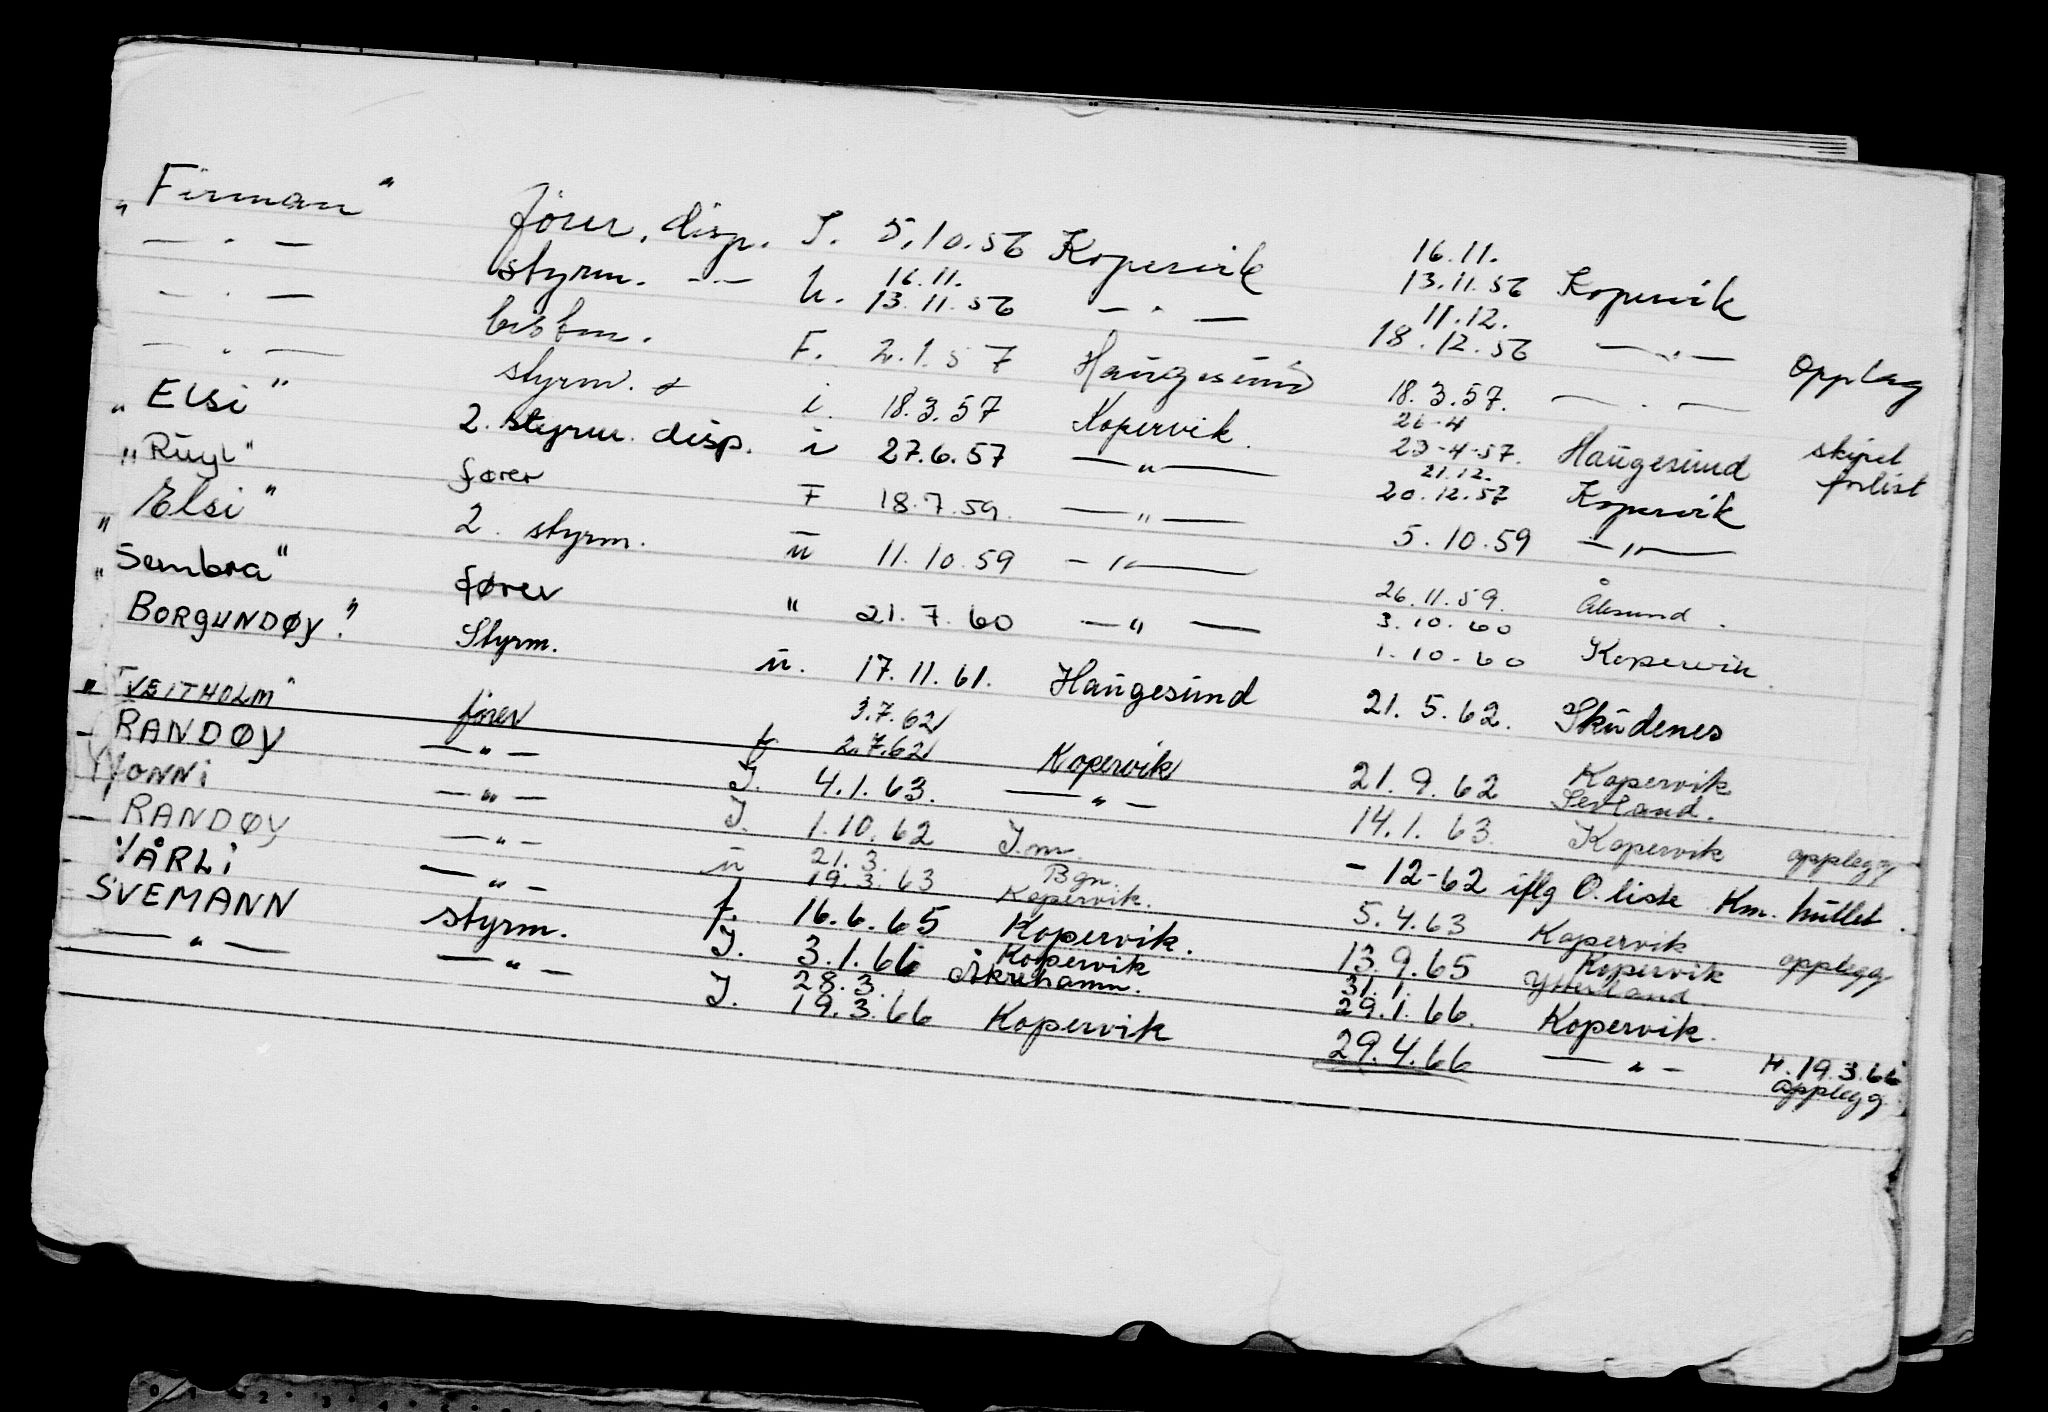 „Firman" fører, disp. I. 5.10.56 Kopervik 16.11. 13.11.56 Kopervik
— " — styrm. —"— u. 16.11. 13.11.56 — " — 11.12. 18.12.56 — " — Opplag
— " — F. 2.1.57 Haugesund 18.3.57. — " —
— " — styrm. i. 18.3.57 Kopervik. 26-4 23-4-57. Haugesund skipet forlist
„Elsi" 2. styrm. disp. i 27.6.57 — " — 21.12. 20.12.57 Kopervik
fører F 18.7.59. — " — 5.10.59 — " —
„Elsi" 2. styrm. u 11.10.59 — " — 26.11.59. Ålesund.
„Sembra" fører " 21.7.60 — " — 3.10.60 1.10.60 Kopervik.
„BORGUNDØY" Styrm. u. 17.11.61. Haugesund 21.5.62. Skudenes
„TVEITHOLM" fører f. 3.7.62 2.7.62 Kopervik 21.9.62 Kopervik
RANDØY — " — I. 4.1.63. — " — 14.1.63. Kopervik opplegg
YVONNI — " — I. 1.10.62 I.m. - 12-62 iflg O. liste Km. hullet.
RANDØY — " — u 21.3. 19.3.63 Bgn. Kopervik. 5.4.63 Kopervik opplegg
VÅRLI — " — f. 16.6.65 Kopervik. 13.9.65 Kopervik
SVEMANN styrm. I. 3.1.66 Kopervik Åkrehamn. 31.1. 29.1.66. Kopervik.
— " — — " — I. 28.3. 19.3.66 Kopervik 29.4.66 — " — H. 19.3.66 opplegg